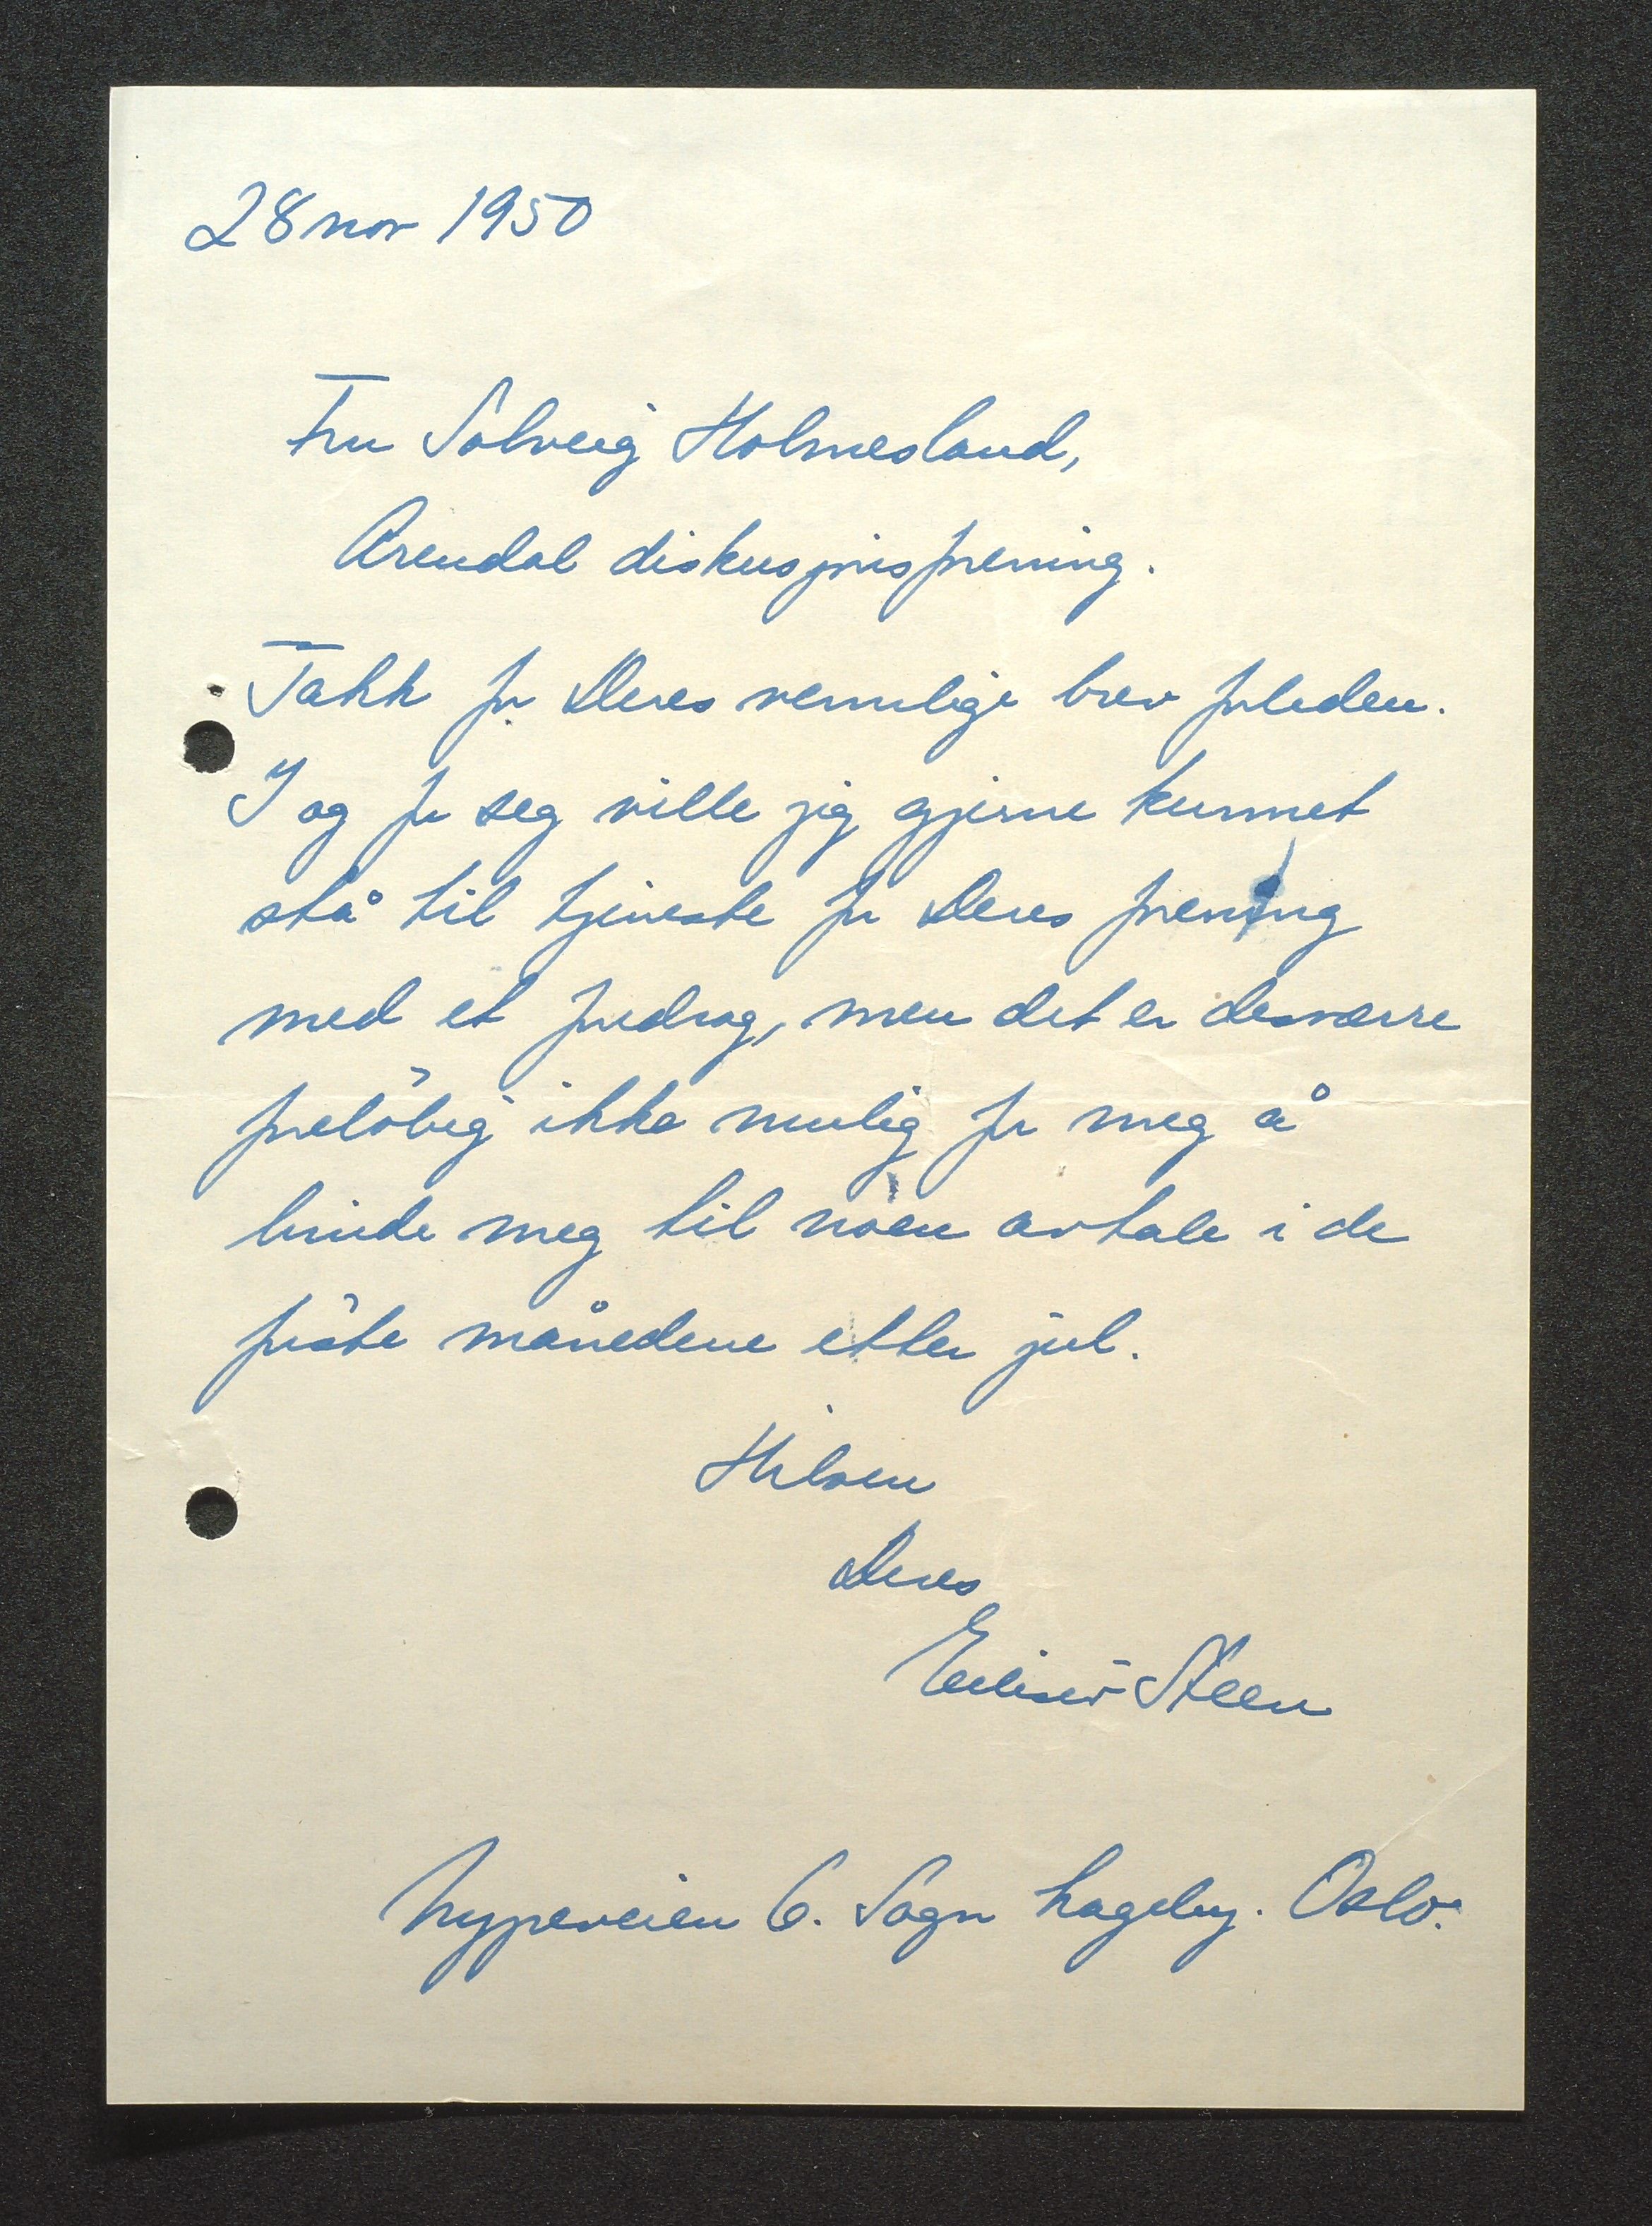 28 nov 1950
Fru Solveig Holmesland,
Arendal diskusjonsforening.
Takk for Deres vennlige brev forleden.
I og for seg ville jeg gjerne kunnet
stå til tjeneste for Deres forening
med et foredrag, men det er desværre
foreløbig ikke mulig for meg å
binde meg til noen avtale i de
første månedene etter jul.
Hilsen
Deres
Steen
Nypeveien 6. Sogn hageby. Oslo.